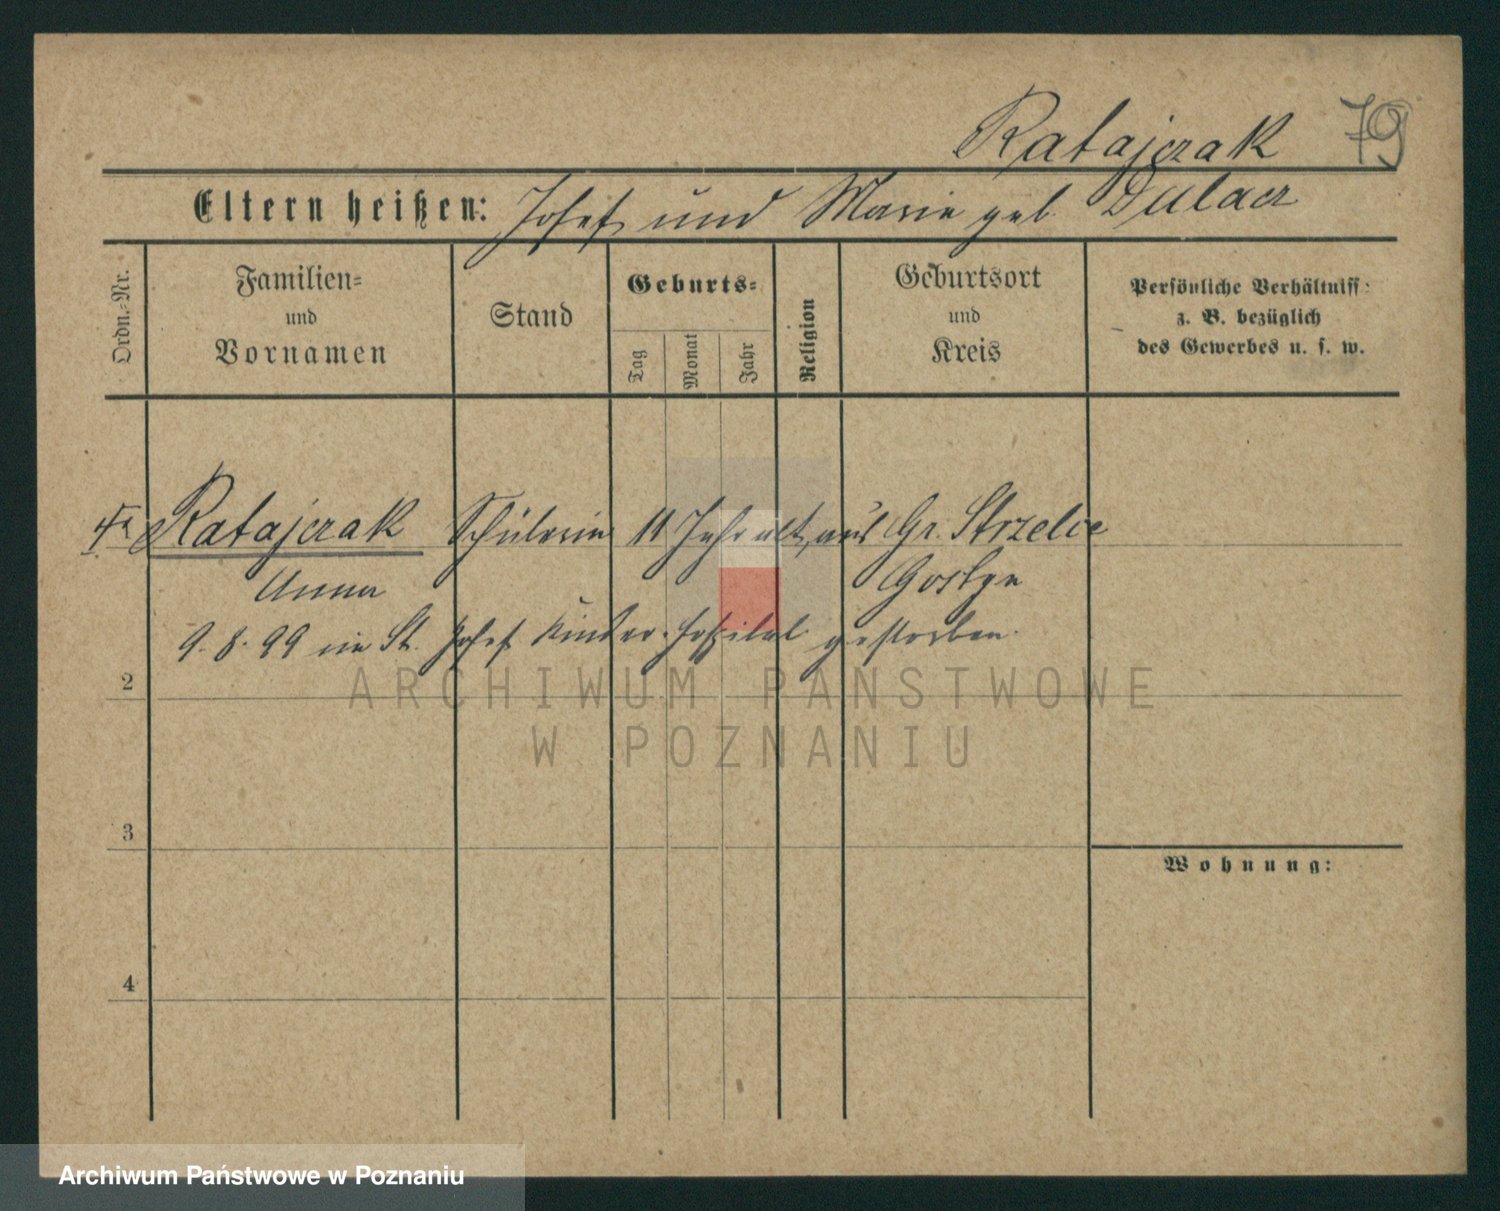 Ratajczak 79
Eltern heißen: Josef und Marie geb Dulacz
Ordn.-Nr.
Familien-
und
Vornamen
Stand
Geburts-
Tag
Monat
Jahr
Religion
Geburtsort
und
Kreis
Persönliche Verhältniss
z. B. bezüglich
des Gewerbes u. s. w.
Ratajczak Schülerin 11 Jahr alt, aus Gr. Strzelce
Anna Gostyn
9. 8. 99 im St. Josef Kinder-Hospital gestorben.
2
3
4
Wohnung:
ARCHIWUM PAŃSTWOWE
W POZNANIU
Archiwum Państwowe w Poznaniu